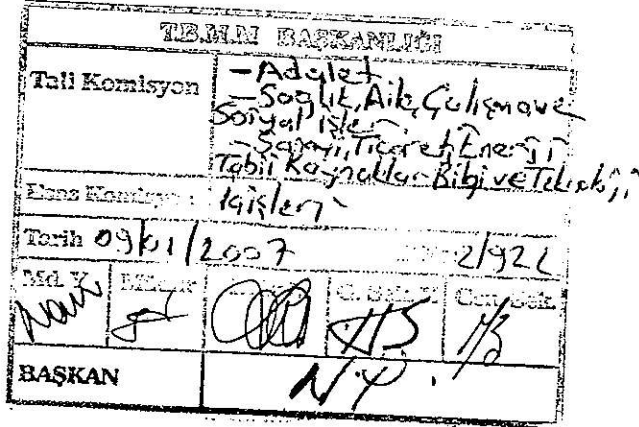 T.B.M.M BAŞKANLIĞI
Tali Komisyon
-Adalet
-Sağlık, Aile, Çalışma ve
Sosyal İşler
-Sanayi, Ticaret, Enerji
Tabii Kaynaklar Bilgi ve Teknoloji
Esas Komisyon
İçişleri
Tarih 09/01/2007
2/922
Md. Y.
G. Sek. Y.
Gen. Sek.
BAŞKAN